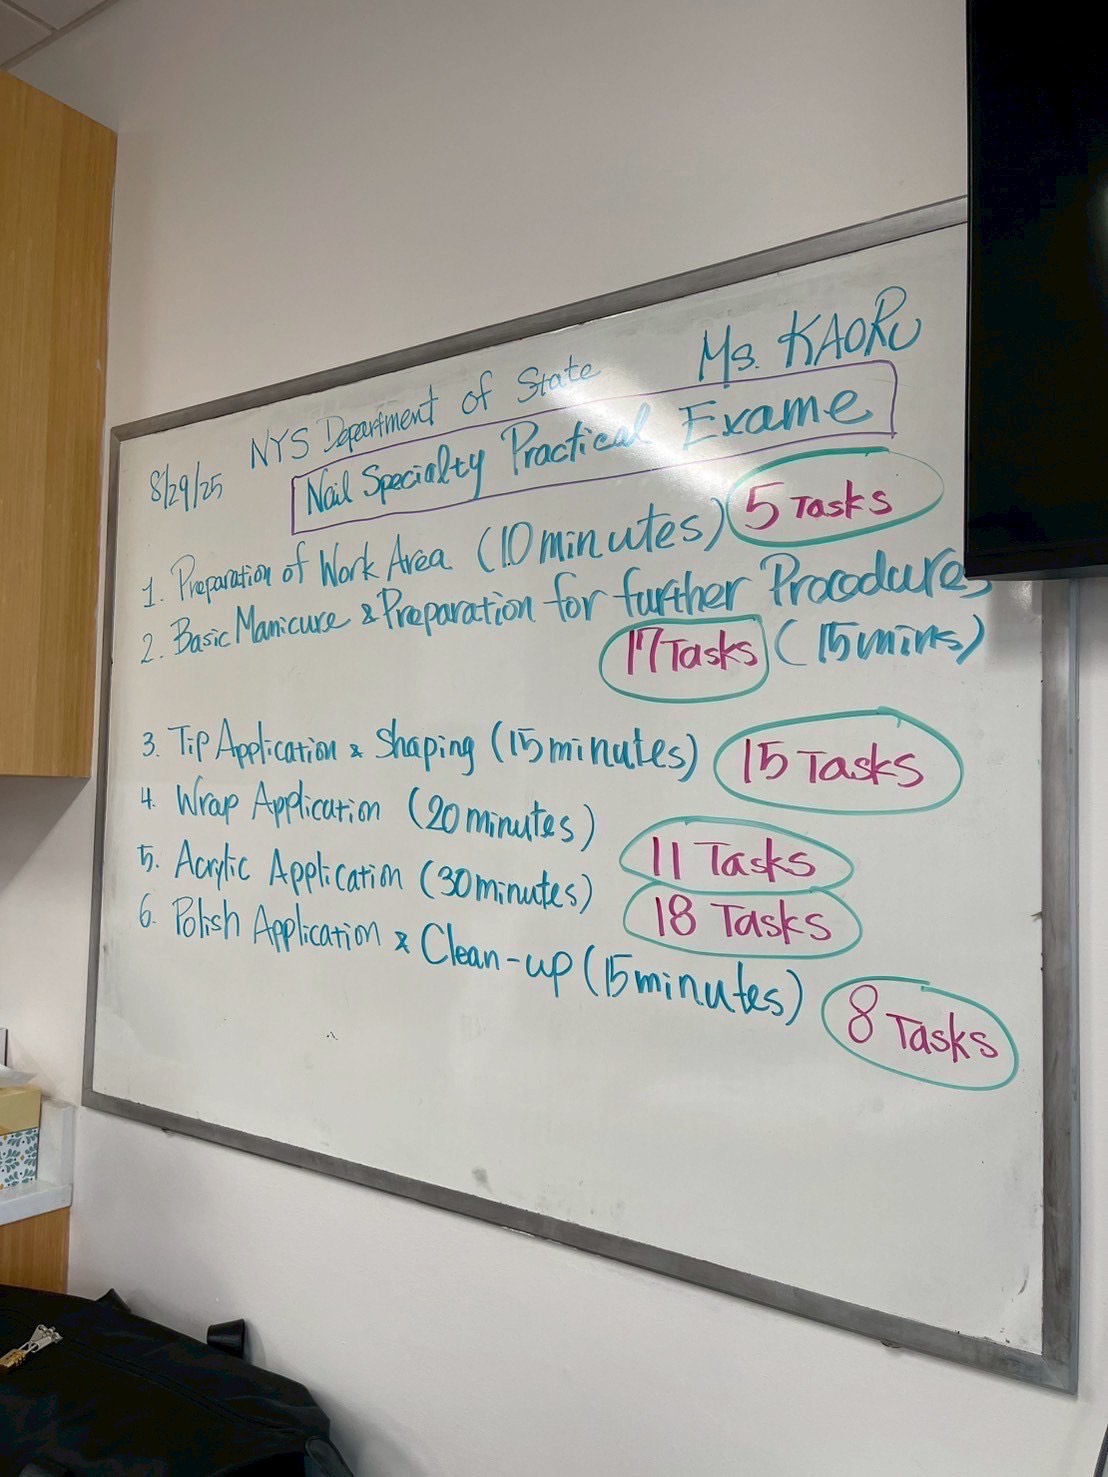 Ms. KAORU
NYS Department of State
8/29/25
Nail Specialty Practical Exame
1. Preparation of Work Area (10 minutes) 5 Tasks
2. Basic Manicure & Preparation for further Procedures
17 Tasks (15 mins)
3. Tip Application & Shaping (15 minutes) 15 Tasks
4. Wrap Application (20 minutes) 11 Tasks
5. Acrylic Application (30 minutes) 18 Tasks
6. Polish Application & Clean-up (15 minutes) 8 Tasks